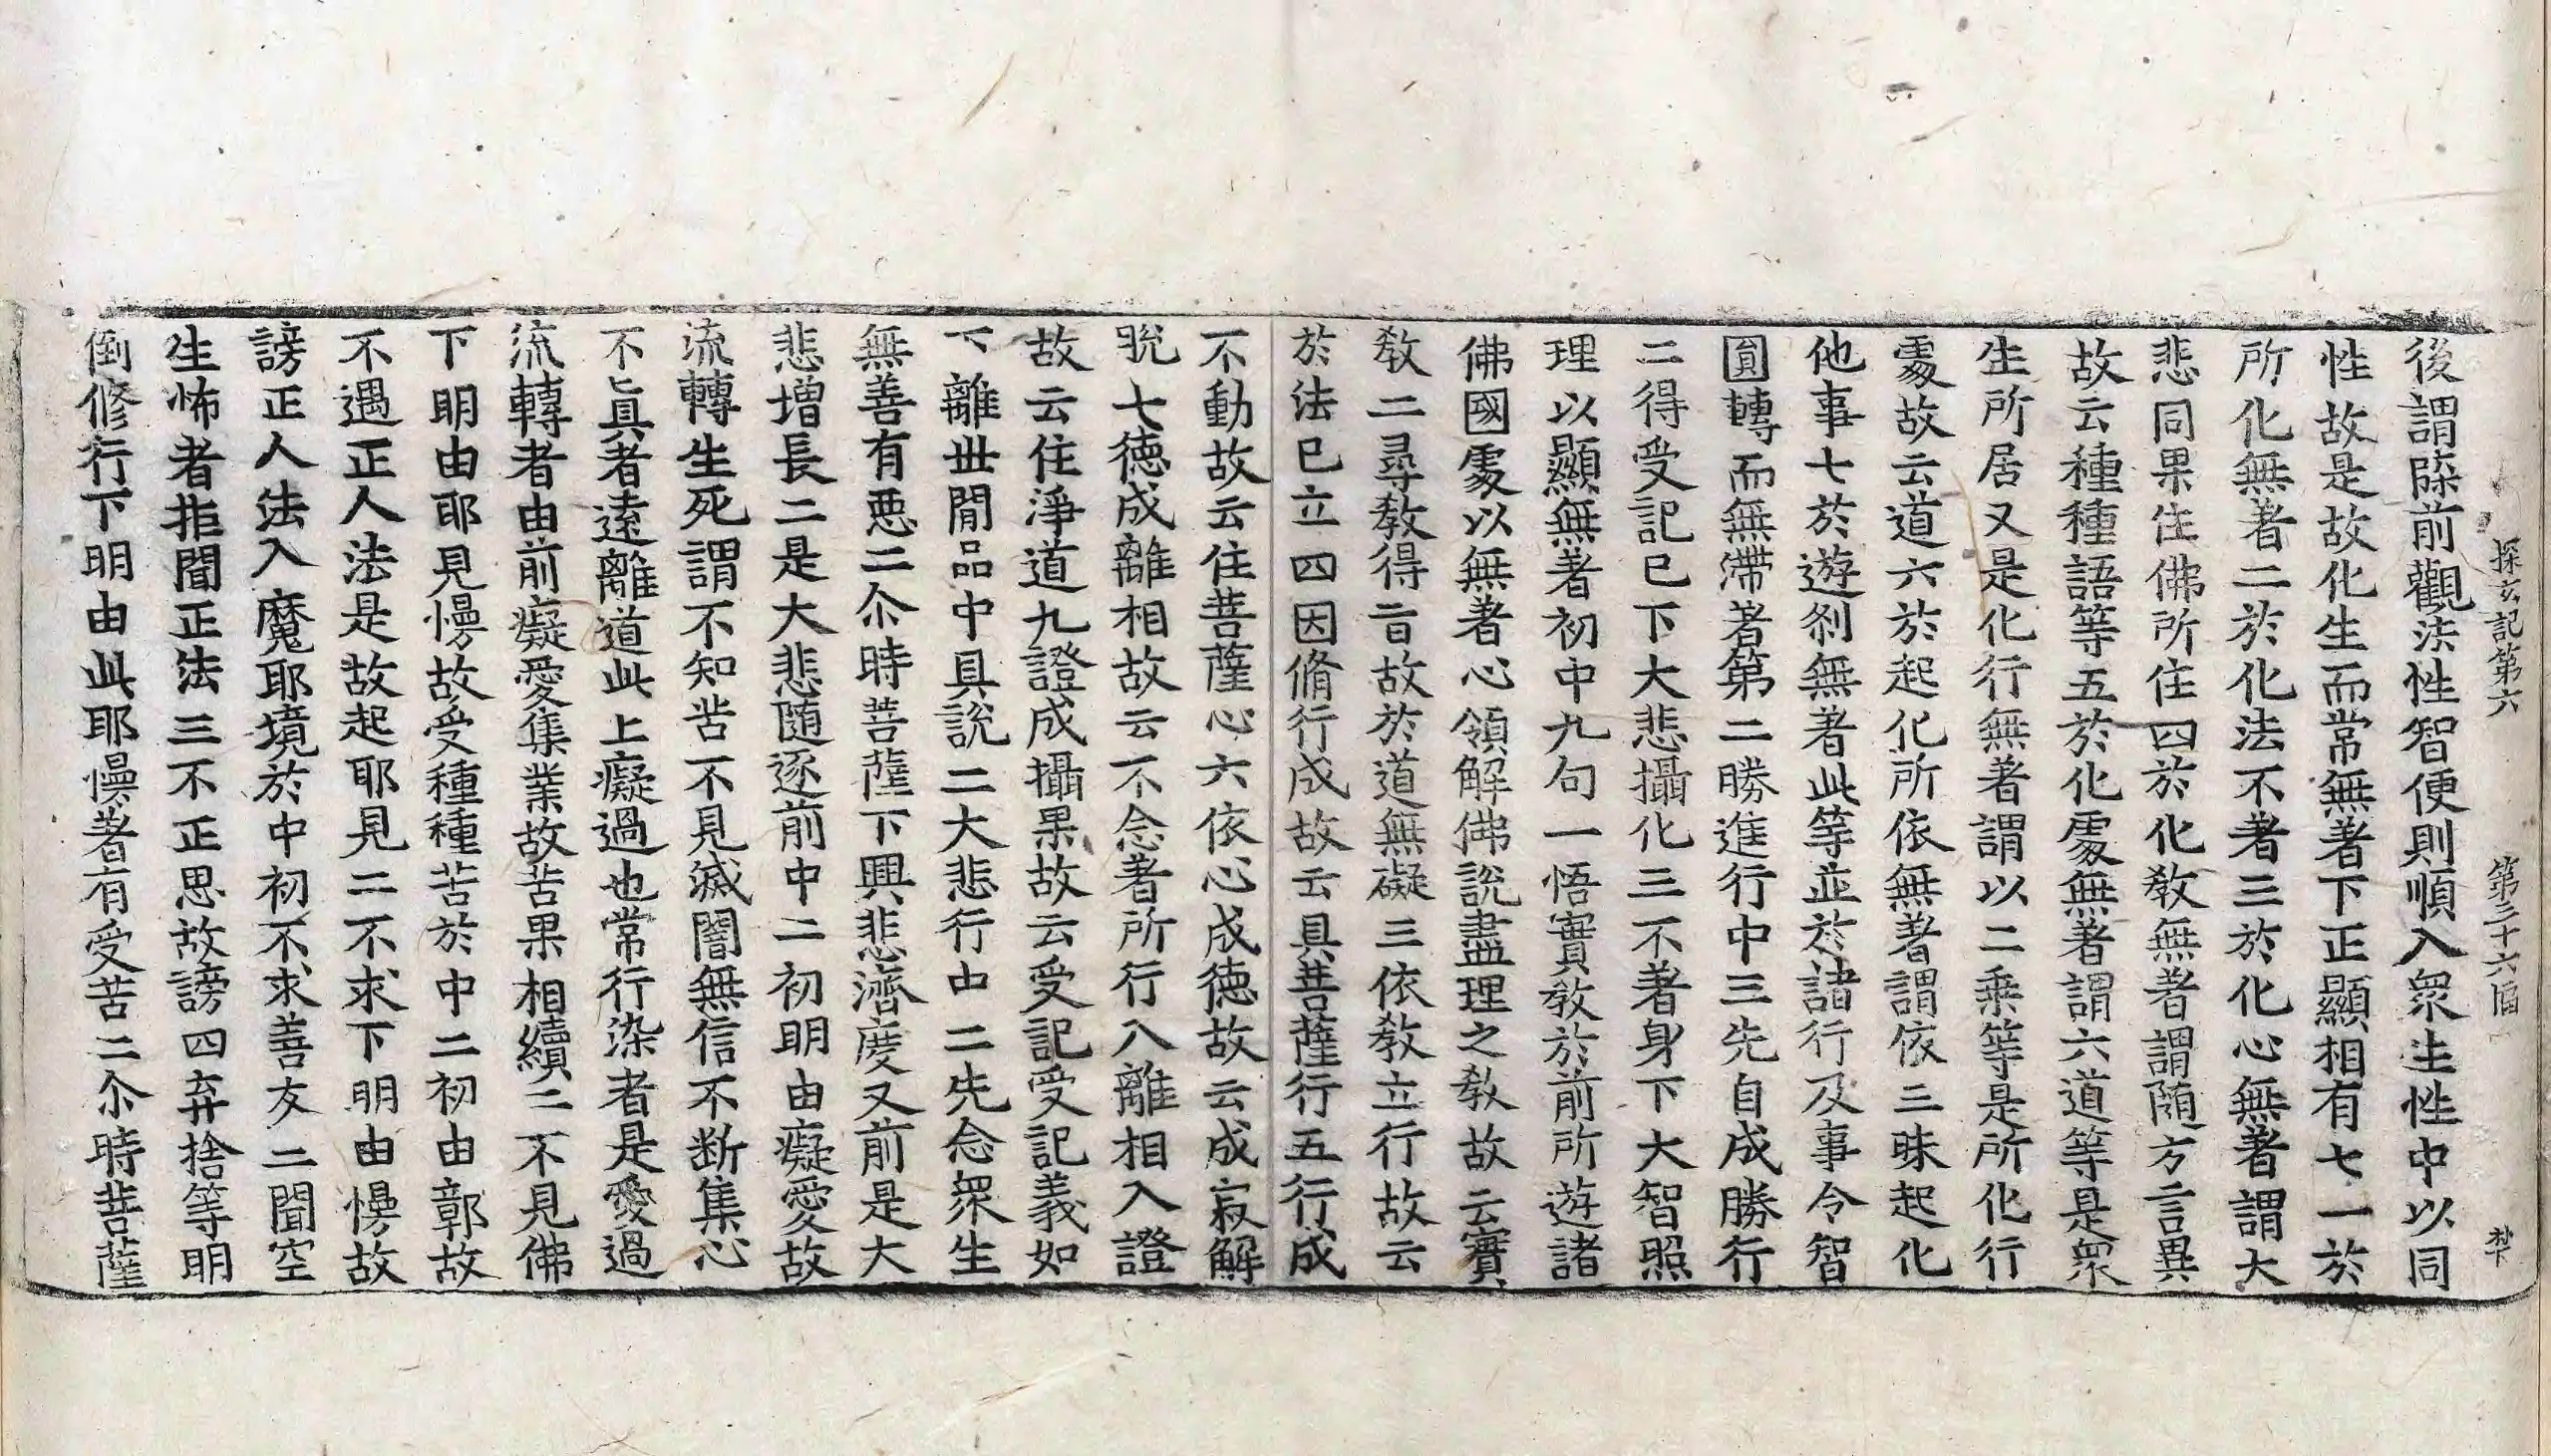 探玄記第六 第三十六幅
後謂躡前觀法性智便則順入衆生性中以同
性故是故化生而常無著下正顯相有七一於
所化無著二於化法不著三於化心無著謂大
悲同果住佛所住四於化教無著謂隨方言異
故云種種語等五於化處無著謂六道等是衆
生所居又是化行無著謂以二乘等是所化行
處故云道六於起化所依無著謂依三昧起化
他事七於遊剎無著此等並於諸行及事令智
圓轉而無滯著第二勝進行中三先自成勝行
二得受記已下大悲攝化三不著身下大智照
理以顯無著初中九句一悟實教於前所遊諸
佛國處以無著心領解佛說盡理之教故云實
教二尋教得旨故於道無礙三依教立行故云
於法已立四因脩行成故云具菩薩行五行成
不動故云住菩薩心六依心成德故云成寂解
脫七德成離相故云不念著所行八離相入證
故云住淨道九證成攝果故云受記受記義如
下離世間品中具說二大悲行中二先念衆生
無善有惡二尒時菩薩下興悲濟度又前是大
悲增長二是大悲隨逐前中二初明由癡愛故
流轉生死謂不知苦不見滅闇無信不断集心
不眞者遠離道此上癡過也常行染者是愛過
流轉者由前癡愛集業故苦果相續二不見佛
下明由耶見慢故受種種苦於中二初由鄣故
不遇正人法是故起耶見二不求下明由慢故
謗正人法入魔耶境於中初不求善友二聞空
生怖者拒聞正法三不正思故謗四弃捨等明
倒修行下明由此耶慢著有受苦二尒時菩薩